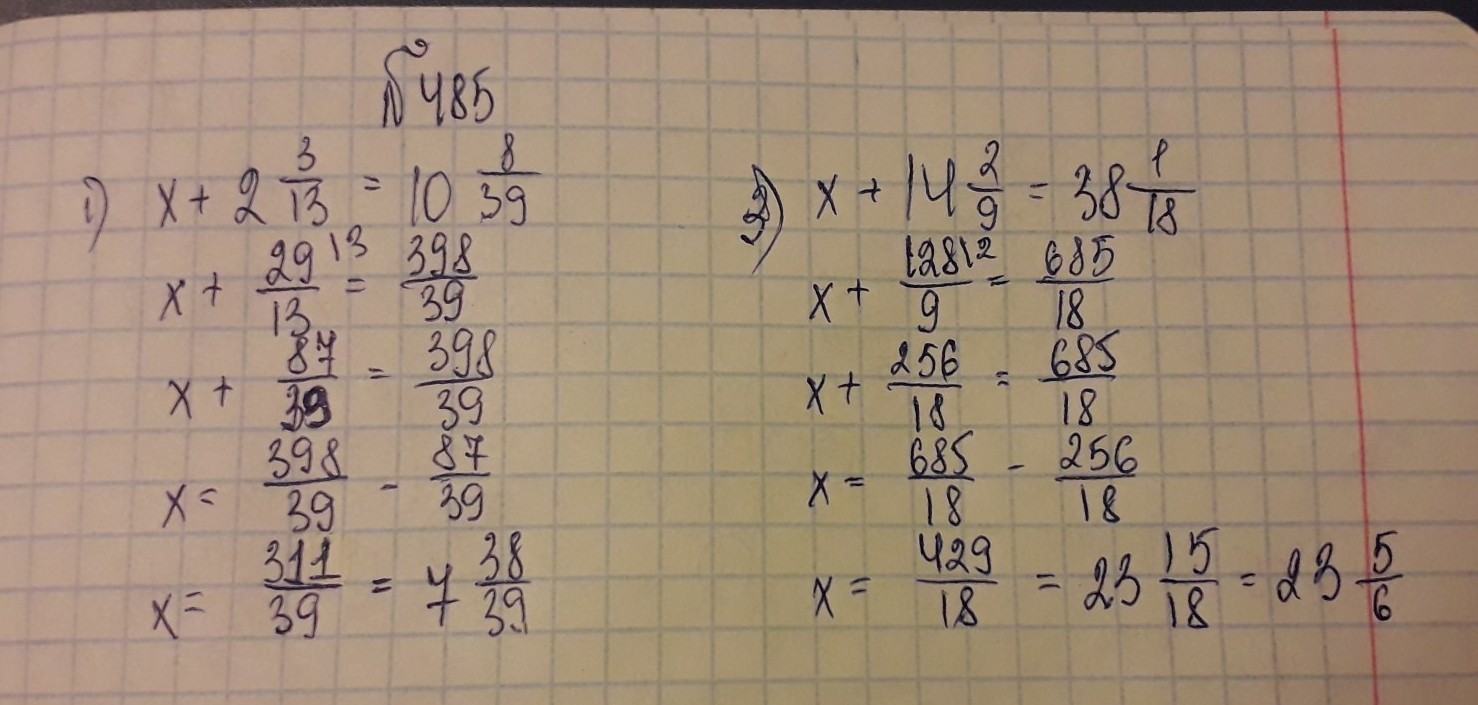 №485
1) x + 2 3/13 = 10 8/39
x + 29/13 |3 = 398/39
x + 87/39 = 398/39
x = 398/39 - 87/39
x = 311/39 = 7 38/39
2) x + 14 2/9 = 38 1/18
x + 128/9 |2 = 685/18
x + 256/18 = 685/18
x = 685/18 - 256/18
x = 429/18 = 23 15/18 = 23 5/6